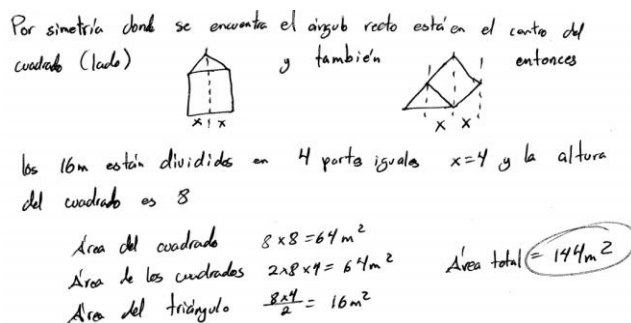 Por simetría donde se encuentra el ángulo recto está en el centro del
cuadrado (lado) y también entonces
x x
x x
los 16m están divididos en 4 partes iguales x=4 y la altura
del cuadrado es 8
Área del cuadrado 8 x 8 = 64 m²
Área de los cuadrados 2 x 8 x 4 = 64 m²
Área del triángulo 8x4/2 = 16 m²
Área total = 144 m²